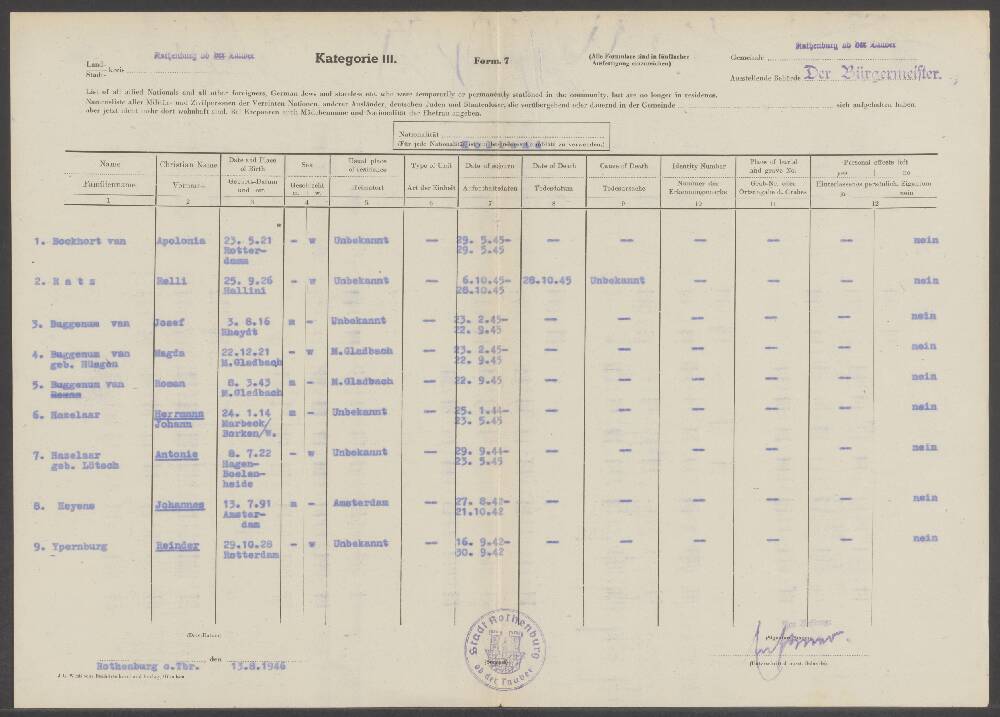 Rothenburg ob der Tauber
Land-
Stadt-
kreis
Kategorie III.
Form. 7
(Alle Formulare sind in fünffacher
Ausfertigung einzureichen)
Gemeinde
Rothenburg ob der Tauber
Ausstellende Behörde
Der Bürgermeister.
List of all allied Nationals and all other foreigners, German Jews and stateless etc. who were temporarily or permanently stationed in the community, but are no longer in residence.
Namensliste aller Militär- und Zivilpersonen der Vereinten Nationen, anderer Ausländer, deutschen Juden und Staatenloser, die vorübergehend oder dauernd in der Gemeinde sich aufgehalten haben,
aber jetzt nicht mehr dort wohnhaft sind. Bei Ehepaaren auch Mädchenname und Nationalität der Ehefrau angeben.
Nationalität
(Für jede Nationalität ist ein besonderes Formblatt zu verwenden)
Name Christian Name Date and Place of Birth Sex Usual place of residence Type of Unit Date of sojourn Date of Death Cause of Death Identity Number Place of burial and grave No. Personal effects left yes no
Familienname Vorname Geburts-Datum und -ort Geschlecht m. w. Heimatort Art der Einheit Aufenthaltsdaten Todesdatum Todesursache Nummer der Erkennungsmarke Grab-No. oder Ortsangabe d. Grabes Hinterlassenes persönlich. Eigentum ja nein
1 2 3 4 5 6 7 8 9 10 11 12
1. Bockhort van Apolonia 23. 5.21 - w Unbekannt — 29. 5.45- — — — — — nein
Rotter- 29. 5.45
damm
2. R a t z Relli 25. 9.26 - w Unbekannt — 6.10.45- 28.10.45 Unbekannt — — — nein
Hallini 28.10.45
3. Buggenum van Josef 3. 8.16 m - Unbekannt — 23. 2.45- — — — — — nein
Rheydt 22. 9.45
4. Buggenum van Magda 22.12.21 - w M.Gladbach — 23. 2.45- — — — — — nein
geb. Hüsgen M.Gladbach 22. 9.45
5. Buggenum van Roman 8. 3.43 m - M.Gladbach — 22. 9.45 — — — — — nein
M.Gladbach
6. Hazelaar Herrmann 24. 1.14 m - Unbekannt — 25. 1.44- — — — — — nein
Johann Marbeck/ 23. 5.45
Borken/W.
7. Hazelaar Antonie 8. 7.22 - w Unbekannt — 29. 9.44- — — — — — nein
geb. Lötsch Hagen- 23. 5.45
Boelen-
heide
8. Heyens Johannes 13. 7.91 m - Amsterdam — 27. 8.42- — — — — — nein
Amster- 21.10.42
dam
9. Ypernburg Reinder 29.10.28 - w Unbekannt — 16. 9.42- — — — — — nein
Rotterdam 30. 9.42
(Date/Datum)
Rothenburg o.Tbr. den 13.8.1946
Stadt Rothenburg
ob der Tauber